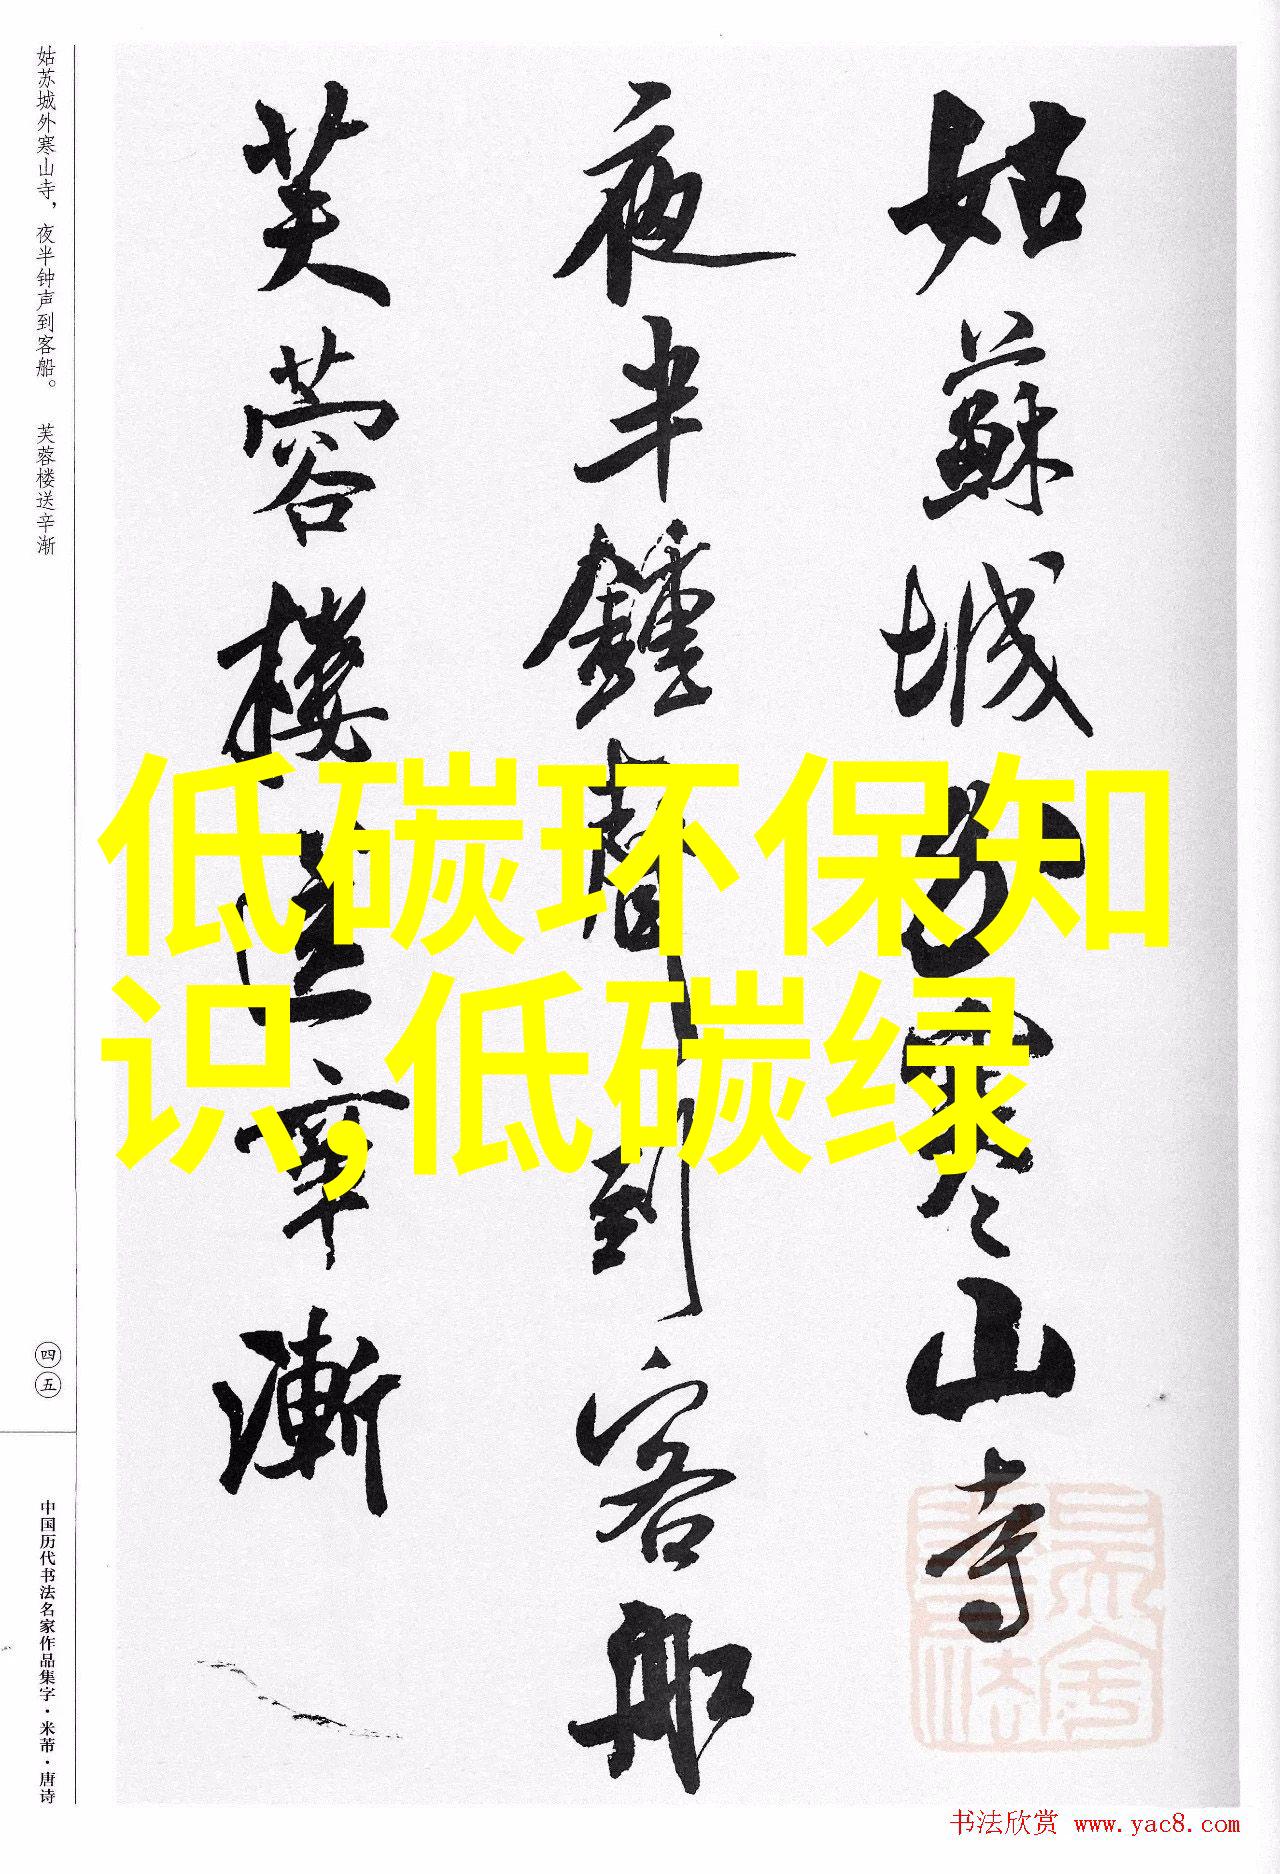 姑苏城外寒山寺，夜半钟声到客船。 芙蓉楼送辛渐
姑蘇城外寒山寺
夜半鍾聲到客船
芙蓉樓送辛漸
低碳环保知
识,低碳绿
四五
中国历代书法名家作品集字·米芾·唐诗
书法欣赏 www.yac8.com